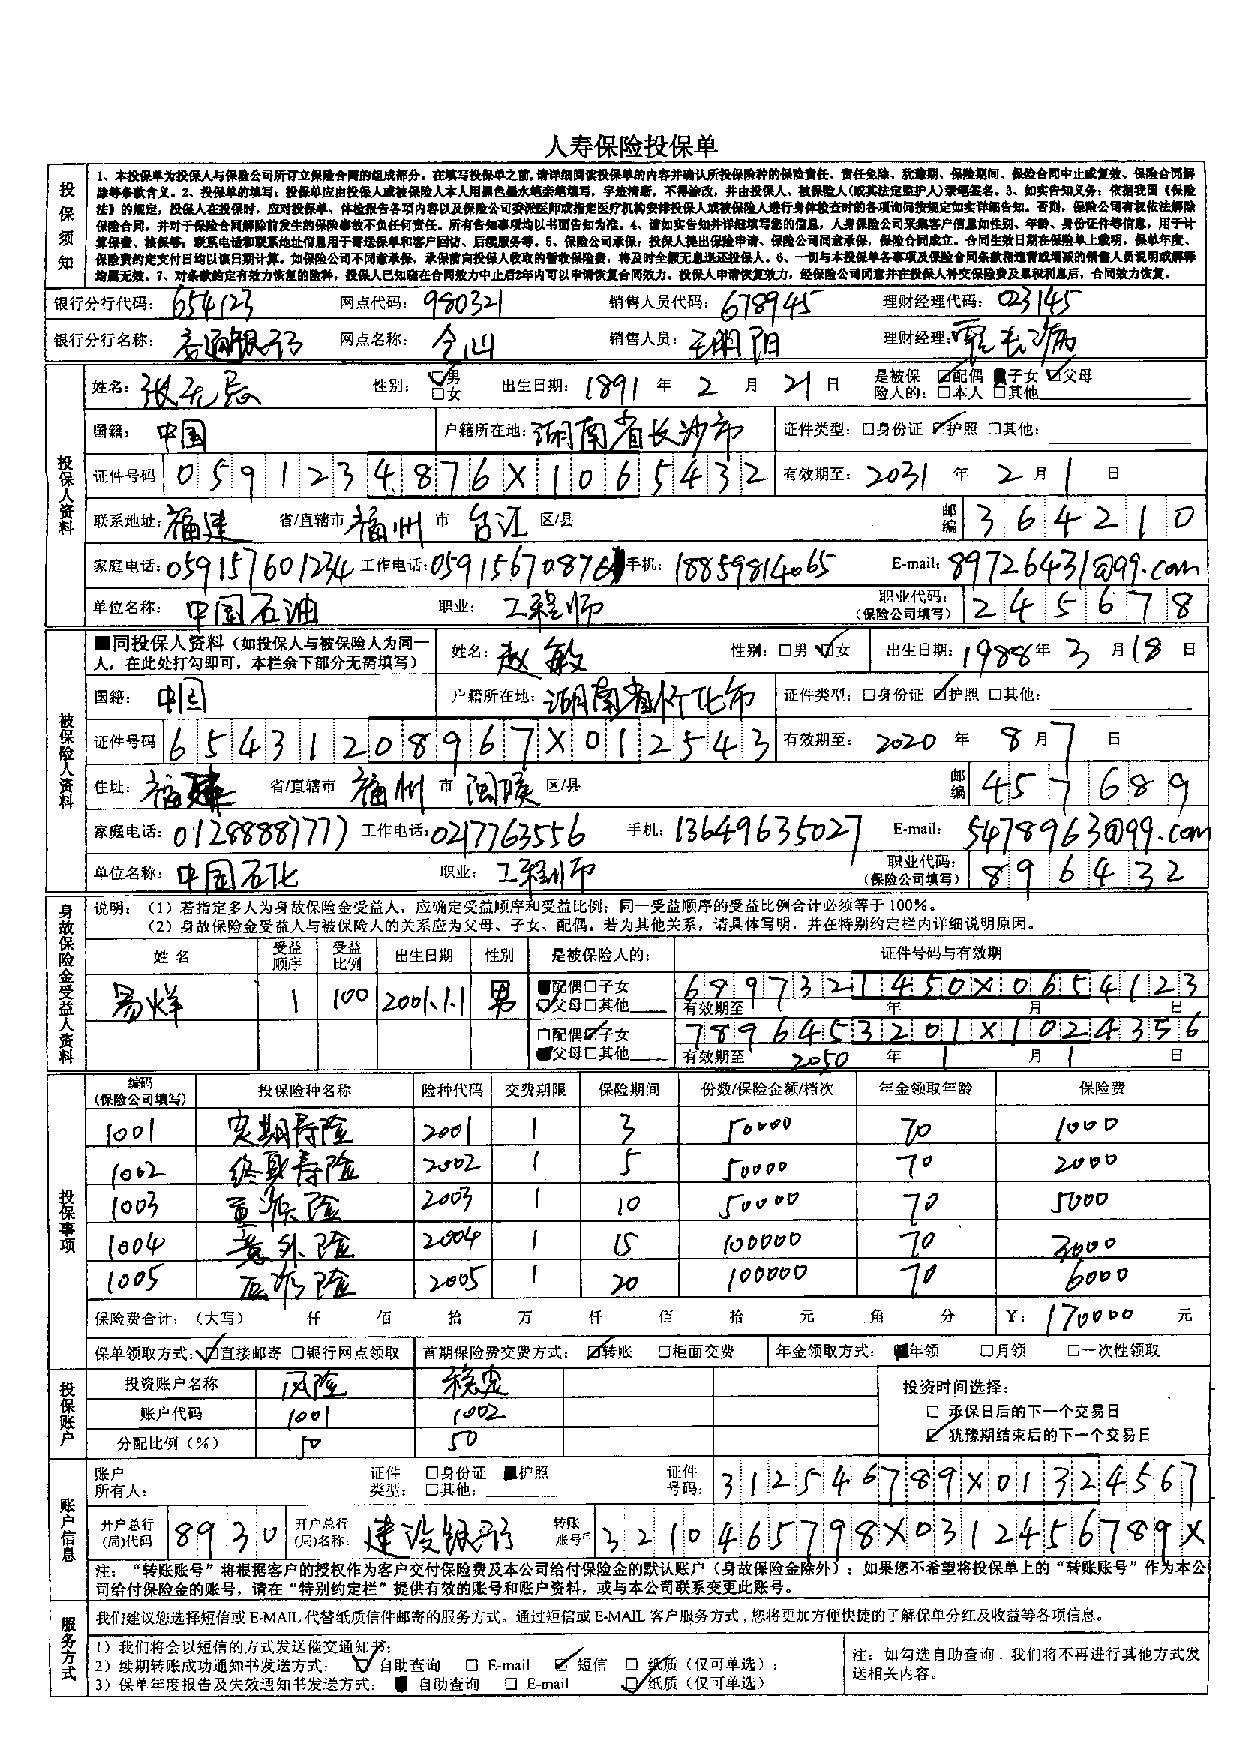 人寿保险投保单
投保须知
1、本投保单为投保人与保险公司所订立保险合同的组成部分。在填写投保单之前,请详细阅读投保单的内容并确认所投保险种的保险责任、责任免除、犹豫期、保险期间、保险合同中止或复效、保险合同解
除等条款含义。2、投保单的填写:投保单应由投保人或被保险人本人用黑色墨水笔亲笔填写,字迹清晰,不得涂改,并由投保人、被保险人(或其法定监护人)亲笔签名。3、如实告知义务:依据我国《保险
法》的规定,投保人在投保时,应对投保单、体检报告各项内容以及保险公司委派医师或指定医疗机构安排投保人或被保险人进行身体检查时的各项询问按规定如实详细告知。否则,保险公司有权依法解除
保险合同,并对于保险合同解除前发生的保险事故不负任何责任。所有告知事项均以书面告知为准。4、请如实告知并详细填写您的信息,人身保险公司采集客户信息如性别、年龄、身份证件等信息,用于计
算保费、核保等;联系电话和联系地址信息用于寄送保单和客户回访、后续服务等。5、保险公司承保:投保人提出保险申请、保险公司同意承保,保险合同成立。合同生效日期在保险单上载明,保单年度、
保险费约定支付日均以该日期计算。如保险公司不同意承保,承保前向投保人收取的暂收保险费,将及时全额无息退还投保人。6、一切与本投保单各事项及保险合同条款相违背或增减的销售人员说明或解释
均属无效。7、对条款约定有效力恢复的险种,投保人已知晓在合同效力中止后2年内可以申请恢复合同效力。投保人申请恢复效力,经保险公司同意并在投保人补交保险费及累积利息后,合同效力恢复。
银行分行代码:654123 网点代码:980321 销售人员代码:678945 理财经理代码:023145
银行分行名称:交通银行 网点名称:仓山 销售人员:王明阳 理财经理:
投保人资料
姓名:张无忌 性别:☑男 □女 出生日期:1891 年 2 月 21 日 是被保险人的:☑配偶 ■子女 ☑父母 □本人 □其他
国籍:中国 户籍所在地:湖南省长沙市 证件类型:□身份证 ☑护照 □其他:
证件号码 0591234876X1065432 有效期至:2031 年 2 月 1 日
联系地址:福建 省/直辖市 福州 市 台江 区/县 邮编 364210
家庭电话:059157601234 工作电话:05915670876 手机:18859814065 E-mail:89726431@99.com
单位名称:中国石油 职业:工程师 职业代码:(保险公司填写) 245678
被保险人资料
■同投保人资料(如投保人与被保险人为同一人,在此处打勾即可,本栏余下部分无需填写) 姓名:赵敏 性别:□男 ☑女 出生日期:1988年 3 月 18 日
国籍:中国 户籍所在地:湖南省怀化市 证件类型:□身份证 ☑护照 □其他:
证件号码 65431208967X012543 有效期至:2020 年 8 月 7 日
住址:福建 省/直辖市 福州 市 闽侯 区/县 邮编 457689
家庭电话:01288887777 工作电话:0217763556 手机:13649635027 E-mail:5478963@99.com
单位名称:中国石化 职业:工程师 职业代码:(保险公司填写) 896432
身故保险金受益人资料
说明:(1)若指定多人为身故保险金受益人,应确定受益顺序和受益比例;同一受益顺序的受益比例合计必须等于100%。
(2)身故保险金受益人与被保险人的关系应为父母、子女、配偶。若为其他关系,请具体写明,并在特别约定栏内详细说明原因。
姓名 受益顺序 受益比例 出生日期 性别 是被保险人的: 证件号码与有效期
易烊 1 100 2001.1.1 男 ■配偶□子女 ☑父母□其他 6897321450X0654123
有效期至 年 月 日
□配偶☑子女 ■父母□其他 7896453201X1024356
有效期至 2050 年 1 月 1 日
投保事项
编码(保险公司填写) 投保险种名称 险种代码 交费期限 保险期间 份数/保险金额/档次 年金领取年龄 保险费
1001 定期寿险 2001 1 3 50000 70 1000
1002 终身寿险 2002 1 5 50000 70 2000
1003 重疾险 2003 1 10 50000 70 5000
1004 意外险 2004 1 15 100000 70 3000
1005 医疗险 2005 1 20 100000 70 6000
保险费合计:(大写) 仟 佰 拾 万 仟 佰 拾 元 角 分 ¥:170000 元
保单领取方式:☑直接邮寄 □银行网点领取 首期保险费交费方式:☑转账 □柜面交费 年金领取方式:■年领 □月领 □一次性领取
投保账户
投资账户名称 风险 稳定 投资时间选择:
账户代码 1001 1002 □ 承保日后的下一个交易日
分配比例(%) 50 50 ☑ 犹豫期结束后的下一个交易日
账户信息
账户所有人: 证件类型:□身份证 ■护照 □其他: 证件号码:312546789X01324567
开户总行(局)代码 8930 开户总行(局)名称:建设银行 转账账号: 3210465798X0312456789X
注:“转账账号”将根据客户的授权作为客户交付保险费及本公司给付保险金的默认账户(身故保险金除外);如果您不希望将投保单上的“转账账号”作为本公
司给付保险金的账号,请在“特别约定栏”提供有效的账号和账户资料,或与本公司联系变更此账号。
服务方式
我们建议您选择短信或 E-MAIL 代替纸质信件邮寄的服务方式。通过短信或 E-MAIL 客户服务方式,您将更加方便快捷的了解保单分红及收益等各项信息。
1)我们将会以短信的方式发送催交通知书;
2)续期转账成功通知书发送方式: ☑ 自助查询 □ E-mail ☑ 短信 □ 纸质(仅可单选);
3)保单年度报告及失效通知书发送方式: ■ 自助查询 □ E-mail ☑纸质(仅可单选)
注:如勾选自助查询,我们将不再进行其他方式发
送相关内容。